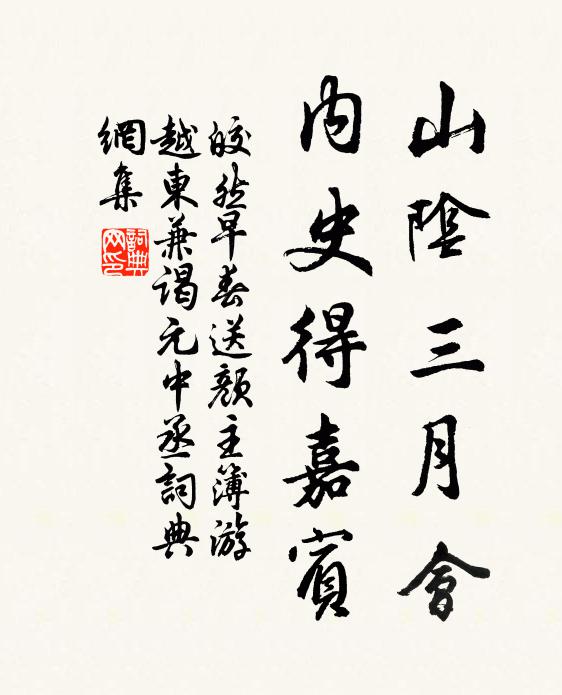 山陰三月會
内史得嘉賓
皎然早春送顔主簿游
越東兼謁元中丞詞典
網集
詞典
网印